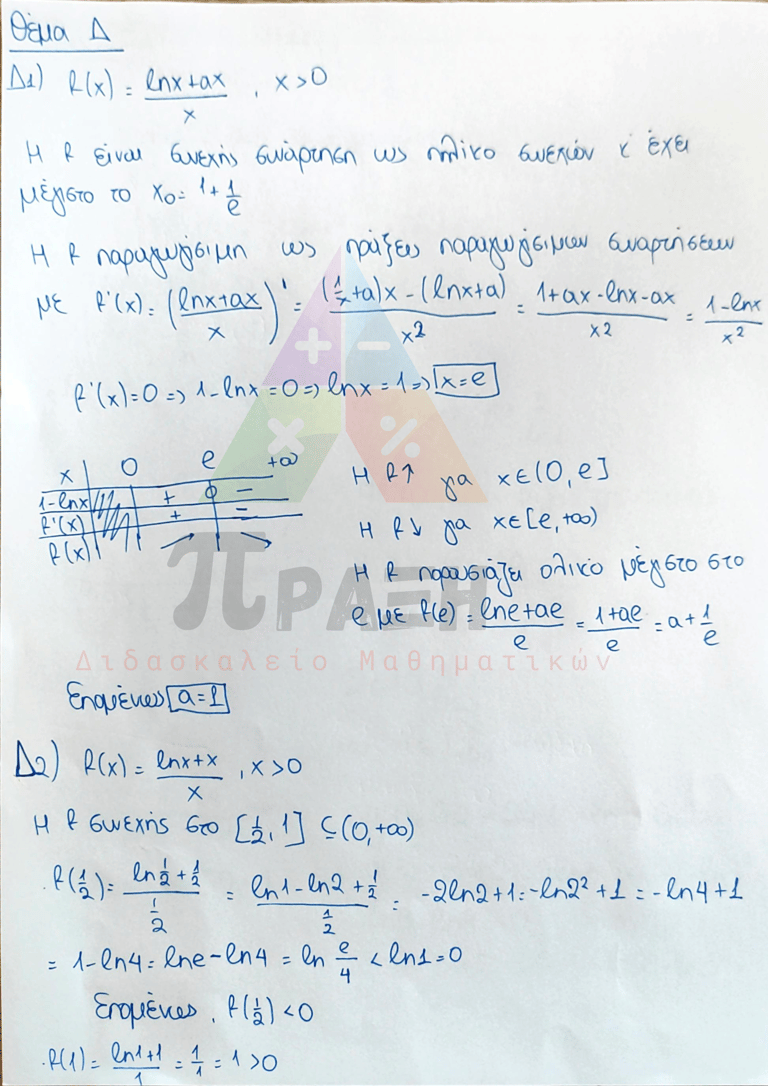 Θέμα Δ
Δ1) f(x) = (lnx+ax)/x , x>0
Η f είναι συνεχής συνάρτηση ως πηλίκο συνεχών κ έχει
μέγιστο το x₀ = 1+1/e
Η f παραγωγίσιμη ως πράξεις παραγωγίσιμων συναρτήσεων
με f'(x) = ((lnx+ax)/x)' = ((1/x+a)x-(lnx+a))/x² = (1+ax-lnx-ax)/x² = (1-lnx)/x²
f'(x)=0 => 1-lnx=0 => lnx=1 => x=e
x 0 e +∞
1-lnx + 0 -
f'(x) + -
f(x) ↗ ↘
Η f↑ για x∈(0,e]
Η f↓ για x∈[e,+∞)
Η f παρουσιάζει ολικό μέγιστο στο
e με f(e) = (lne+ae)/e = (1+ae)/e = a+1/e
πΡΑΞΗ
Διδασκαλείο Μαθηματικών
Επομένως a=1
Δ2) f(x) = (lnx+x)/x , x>0
Η f συνεχής στο [1/2,1] ⊆(0,+∞)
·f(1/2) = (ln1/2+1/2)/(1/2) = (ln1-ln2+1/2)/(1/2) = -2ln2+1 = -ln2²+1 = -ln4+1
= 1-ln4 = lne-ln4 = ln e/4 < ln1=0
Επομένως, f(1/2)<0
·f(1) = (ln1+1)/1 = 1/1 = 1 >0